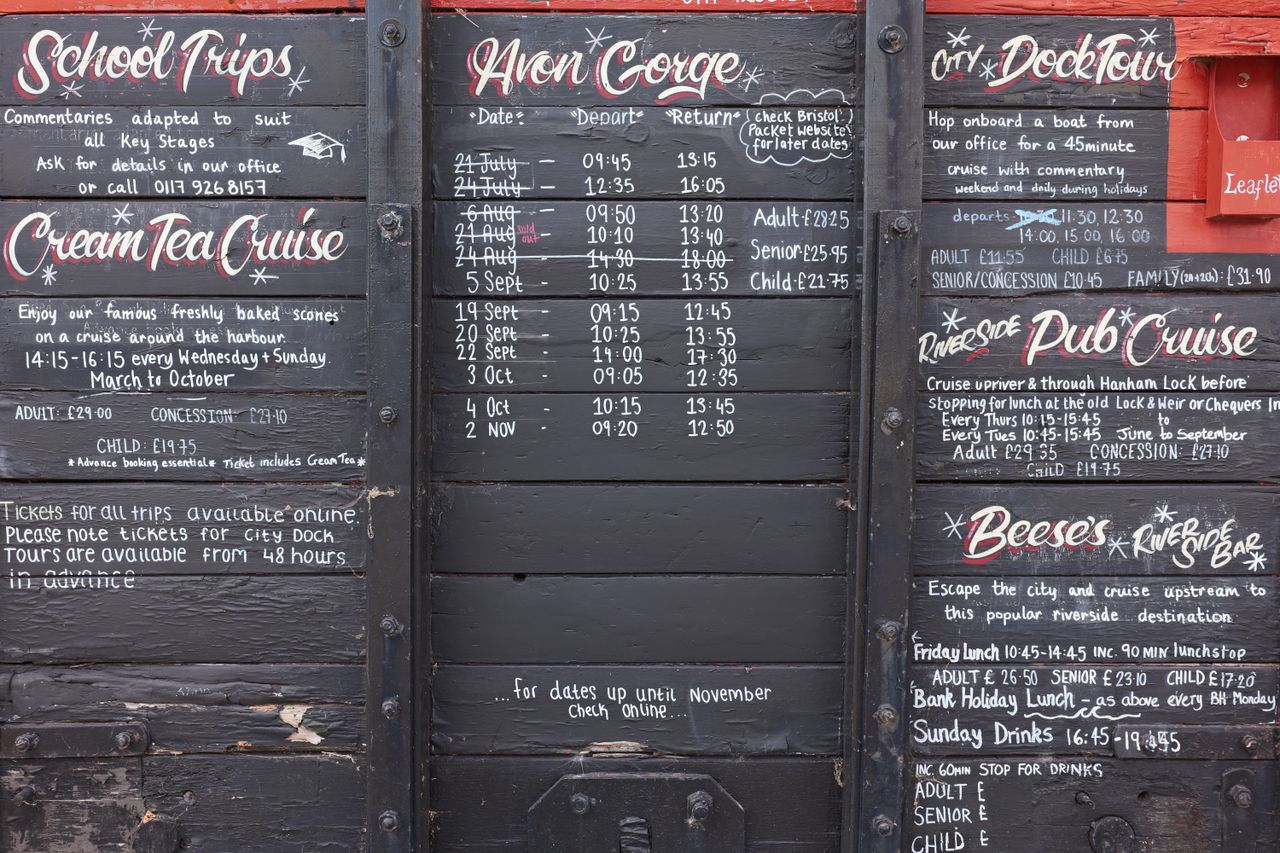 School Trips
Commentaries adapted to suit
all Key Stages
Ask for details in our office
or call 0117 926 8157
Cream Tea Cruise
Enjoy our famous freshly baked scones
on a cruise around the harbour.
14:15-16:15 every Wednesday + Sunday.
March to October
ADULT: £29.00 CONCESSION: £27.10
CHILD: £19.75
*Advance booking essential* Ticket includes Cream Tea*
Tickets for all trips available online.
Please note tickets for City Dock
Tours are available from 48 hours
in advance
Avon Gorge
"Date" "Depart" "Return"
check Bristol
Packet website
for later dates
21 July - 09:45 13:15
24 July - 12:35 16:05
6 Aug - 09:50 13:20
21 Aug sold out 10:10 13:40
24 Aug - 14:30 18:00
5 Sept - 10:25 13:55
Adult £28.25
Senior £25.95
Child £21.75
19 Sept - 09:15 12:45
20 Sept - 10:25 13:55
22 Sept - 14:00 17:30
3 Oct - 09:05 12:35
4 Oct - 10:15 13:45
2 NOV - 09:20 12:50
...for dates up until November
check online...
City Dock Tour
Hop onboard a boat from
our office for a 45minute
cruise with commentary
weekend and daily during holidays
departs 11:30, 12:30
14:00, 15:00, 16:00
ADULT £11.55 CHILD £6.75
SENIOR/CONCESSION £10.45 FAMILY (2A+2Ch): £31.90
Leafle
Riverside Pub Cruise
Cruise upriver & through Hanham Lock before
stopping for lunch at the old Lock & Weir or Chequers In
Every Thurs 10:15-15:45 to
Every Tues 10:45-15:45 June to September
Adult £29.35 CONCESSION: £27.10
CHILD £19.75
Beese's Riverside Bar
Escape the city and cruise upstream to
this popular riverside destination
Friday Lunch 10:45-14:45 INC. 90 MIN lunchstop
ADULT £ 26.50 SENIOR £ 23.10 CHILD £17.20
Bank Holiday Lunch - as above every BH Monday
Sunday Drinks 16:45-
INC. 60min STOP FOR DRINKS
ADULT £
SENIOR £
CHILD £